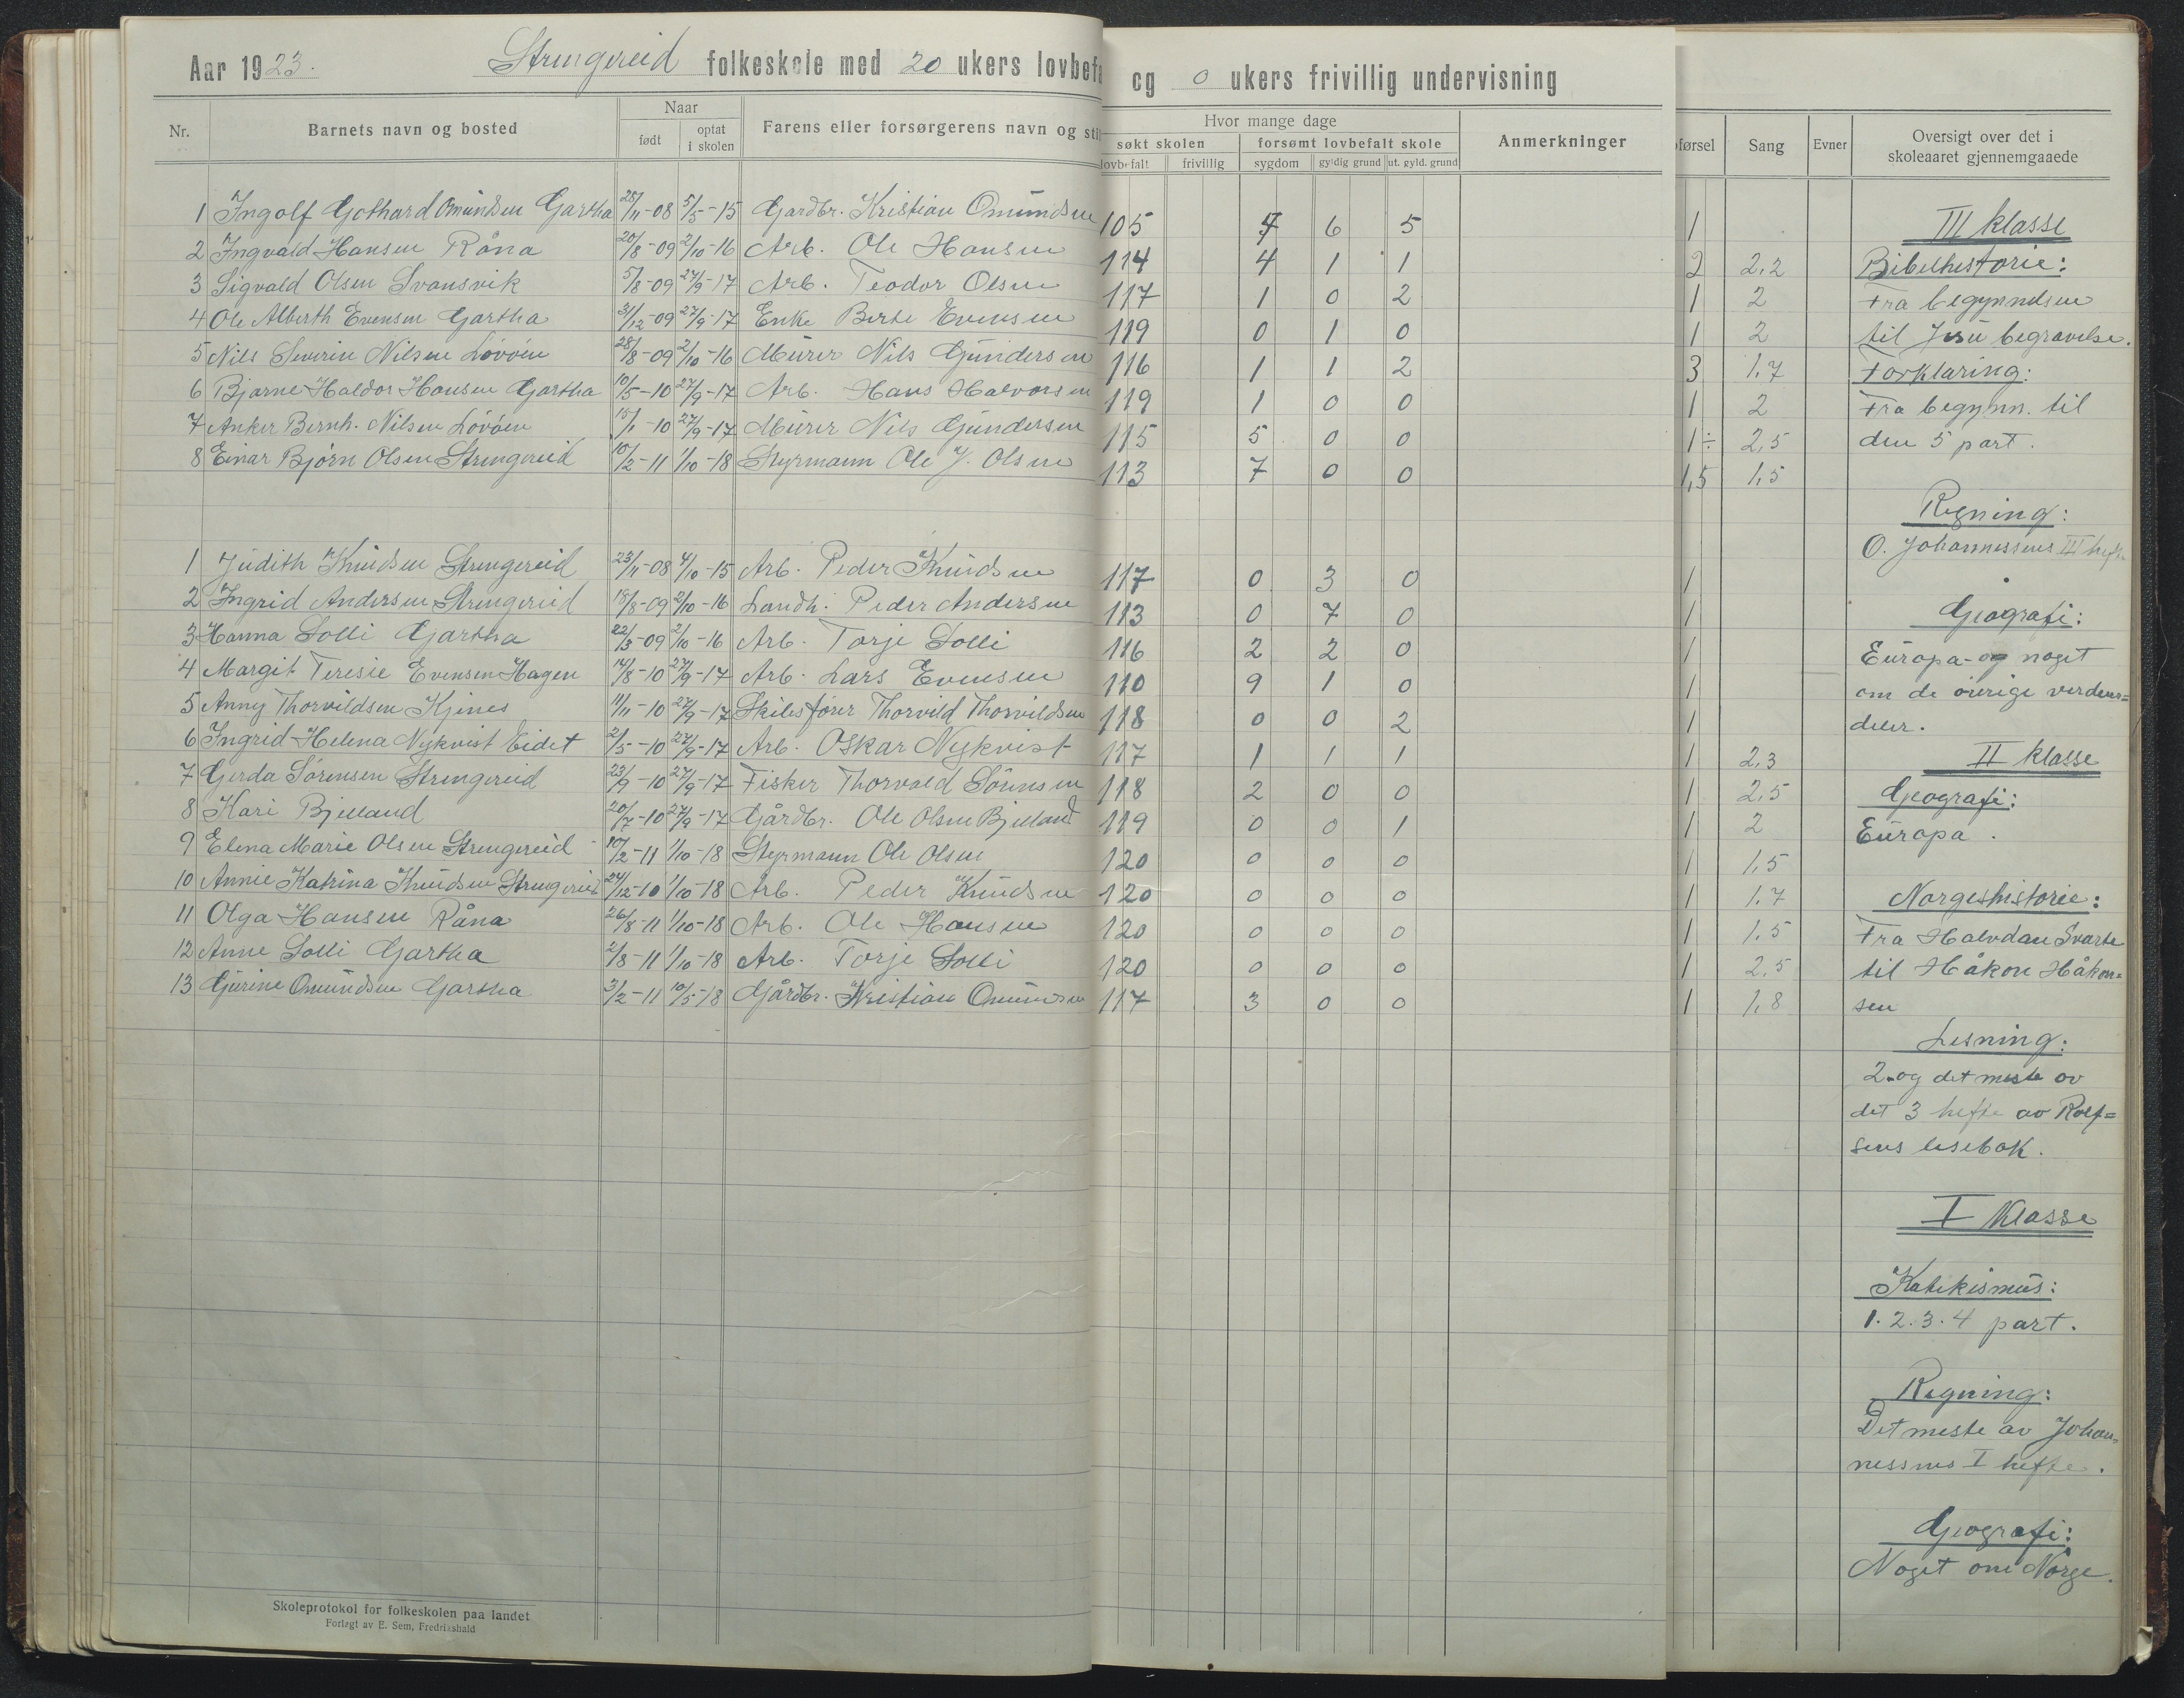 Aar 1923. Strengereid folkeskole med 20 ukers lovbefa og 0 ukers frivillig undervisning
Nr. Barnets navn og bosted Naar født optat i skolen Farens eller forsørgerens navn og stil
Hvor mange dage
søkt skolen forsømt lovbefalt skole Anmerkninger
lovbefalt frivillig sygdom gyldig grund ut. gyld. grund
førsel Sang Evner Oversigt over det i skoleaaret gjennemgaaede
1 Ingolf Gothard Omundsen Gartha 28/11-08 5/5-15 Gardbr. Kristian Omundsen 105 7 6 5 1
2 Ingvald Hansen Råna 20/8-09 2/10-16 Arb. Ole Hansen 114 4 1 1 2 2,2
3 Sigvald Olsen Svansvik 5/8-09 27/9-17 Arb. Teodor Olsen 117 1 0 2 1 2
4 Ole Alberth Evensen Gartha 31/12-09 27/9-17 Enke Berte Evensen 119 0 1 0 1 2
5 Nils Severin Nilsen Løvöen 28/8-09 2/10-16 Murer Nils Gundersen 116 1 1 2 3 1,7
6 Bjarne Haldor Hansen Gartha 10/5-10 27/9-17 Arb. Hans Halvorsen 119 1 0 0 1 2
7 Anker Bernh. Nilsen Løvöen 15/1-10 27/9-17 Murer Nils Gundersen 115 5 0 0 1÷ 2,5
8 Einar Bjørn Olsen Strengereid 10/2-11 1/10-18 Styrmann Ole J. Olsen 113 7 0 0 1,5 1,5
1 Judith Knudsen Strengereid 23/11-08 4/10-15 Arb. Peder Knudsen 117 0 3 0 1
2 Ingrid Andersen Strengereid 18/8-09 2/10-16 Landh. Peder Andersen 113 0 7 0 1
3 Hanna Solli Gartha 22/3-09 2/10-16 Arb. Torje Solli 116 2 2 0 1
4 Margit Teresie Evensen Hagen 14/8-10 27/9-17 Arb. Lars Evensen 110 9 1 0 1
5 Anny Thorvildsen Kjenes 11/11-10 27/9-17 Skibsfører Thorvild Thorvildsen 118 0 0 2 1
6 Ingrid Helena Nykvist Eidet 2/5-10 27/9-17 Arb. Oskar Nykvist 117 1 1 1 1 2,3
7 Gerda Sörensen Strengereid 23/9-10 27/9-17 Fisker Thorvald Sörensen 118 2 0 0 1 2,5
8 Kari Bjelland 20/7-10 27/9-17 Gårdbr. Ole Olsen Bjelland 119 0 0 1 1 2
9 Elena Marie Olsen Strengereid 10/2-11 1/10-18 Styrmann Ole Olsen 120 0 0 0 1 1,5
10 Annie Katrina Knudsen Strengereid 24/12-10 1/10-18 Arb. Peder Knudsen 120 0 0 0 1 1,7
11 Olga Hansen Råna 26/8-11 1/10-18 Arb. Ole Hansen 120 0 0 0 1 1,5
12 Anne Solli Gartha 2/8-11 1/10-18 Arb. Torje Solli 120 0 0 0 1 2,5
13 Gurine Omundsen Gartha 3/2-11 10/5-18 Gårdbr. Kristian Omundsen 117 3 0 0 1 1,8
III klasse
Bibelhistorie:
Fra begynndsen
til Jesu begravelse.
Forklaring:
Fra begynn. til
den 5 part.
Regning:
O. Johannessens III heft.
Geografi:
Europa og noget
om de øvrige verdens=
deler.
II klasse
Geografi:
Europa.
Norgeshistorie:
Fra Halvdan Svarte
til Håkon Håkon=
sen
Lesning:
2. og det meste av
det 3 hefte av Rolf=
sens lesebok.
I Klasse
Katekismus:
1. 2. 3. 4 part.
Regning:
Det meste av Johan=
nessens I hefte.
Geografi:
Noget om Norge.
Skoleprotokol for folkeskolen paa landet
Forlagt av E. Sem, Fredrikshald